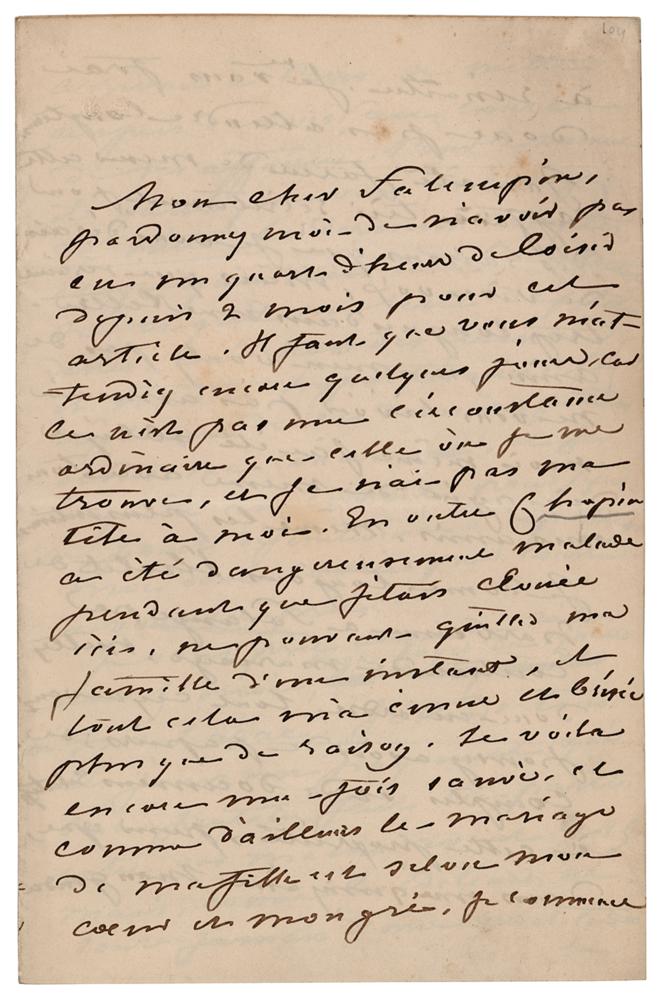 104
Mon cher Falempin,
pardonnez moi de n'avoir pas
eu un quart d'heure de loisir
depuis 2 mois pour cet
article. Il faut que vous m'at-
tendiez encore quelques jours, car
ce n'est pas une circonstance
ordinaire que celle où je me
trouve, et je n'ai pas ma
tête à moi. En outre Chopin
a été dangereusement malade
pendant que j'étais clouée
ici, ne pouvant quitter ma
famille d'un instant, et
tout cela m'a émue et brisée
plus que de raison. Le voilà
encore une fois sauvé, et
comme d'ailleurs le mariage
de ma fille est selon mon
coeur et mon gré, je commence